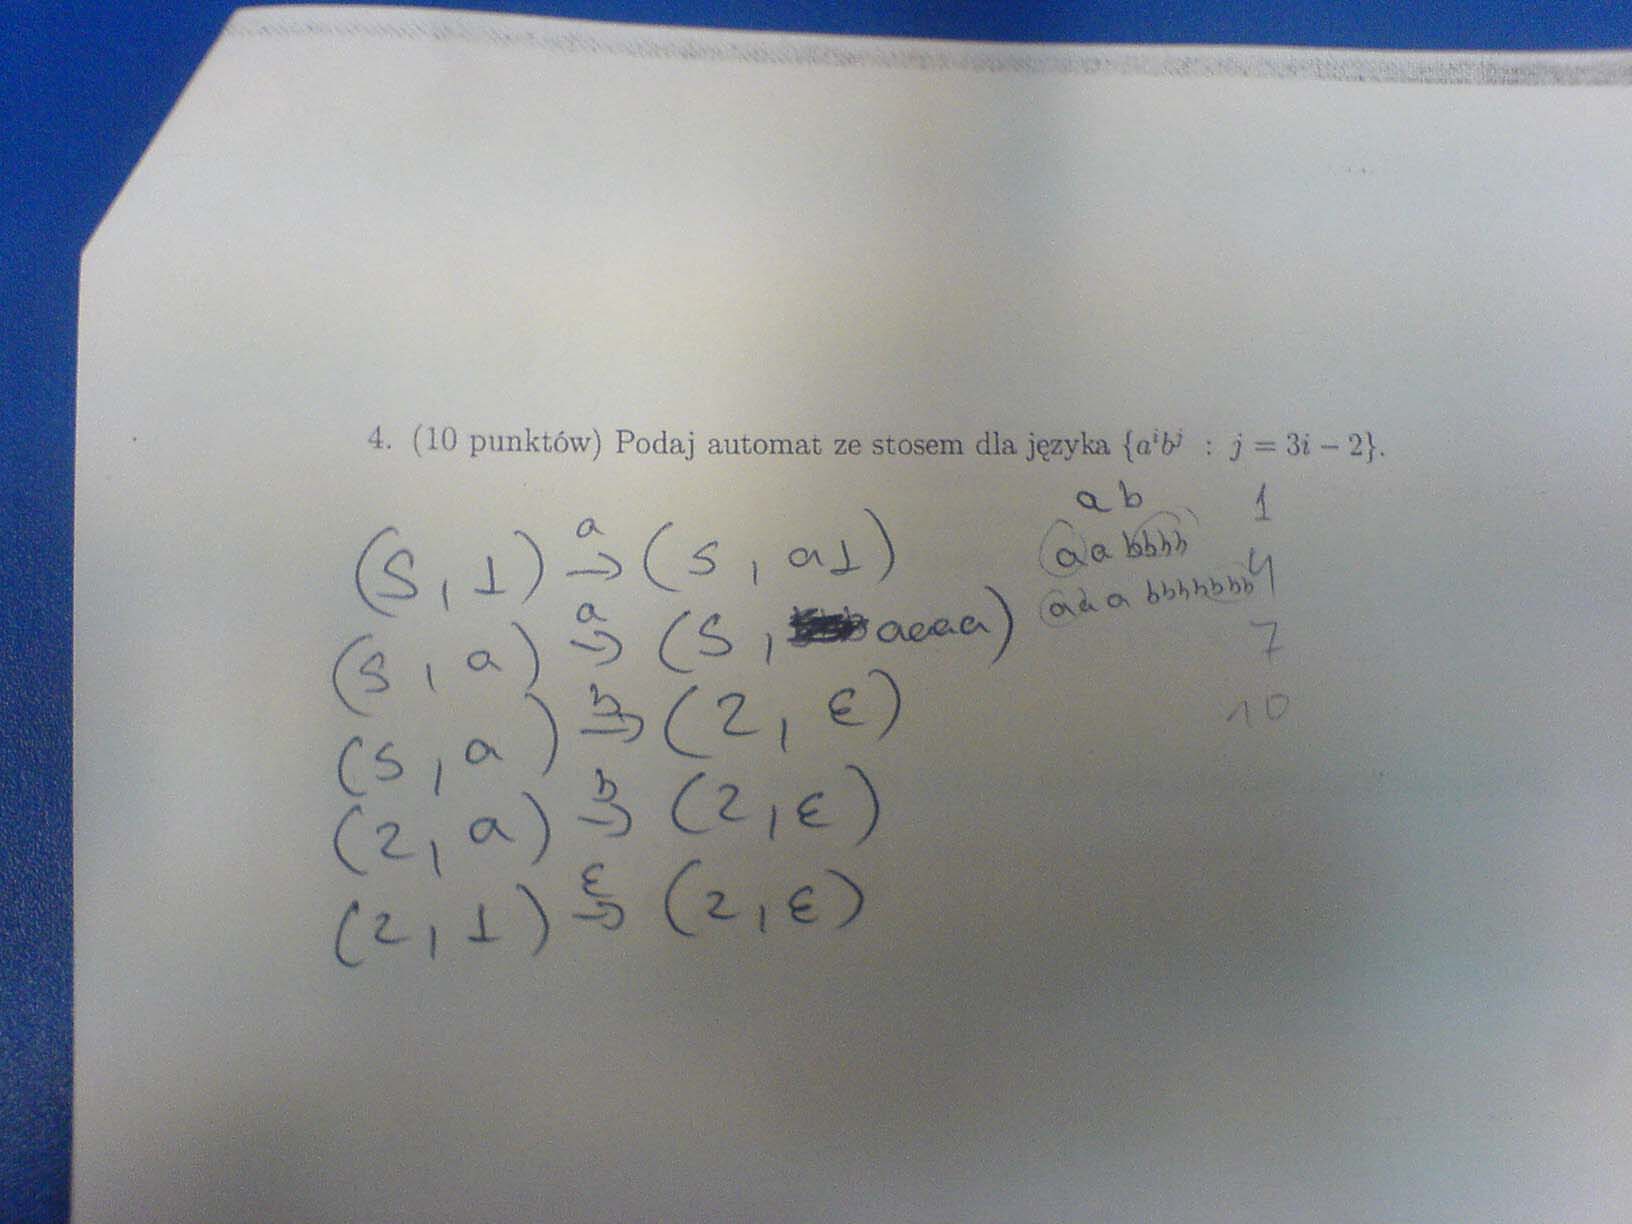 4. (10 punktów) Podaj automat ze stosem dla języka {aⁱbʲ : j = 3i − 2}.
(S, ⊥) a→ (S, a⊥)
(S, a) a→ (S, aaaa)
(S, a) b→ (2, ε)
(2, a) b→ (2, ε)
(2, ⊥) ε→ (2, ε)
ab 1
aabbbb 4
aaabbbbbbb
7
10